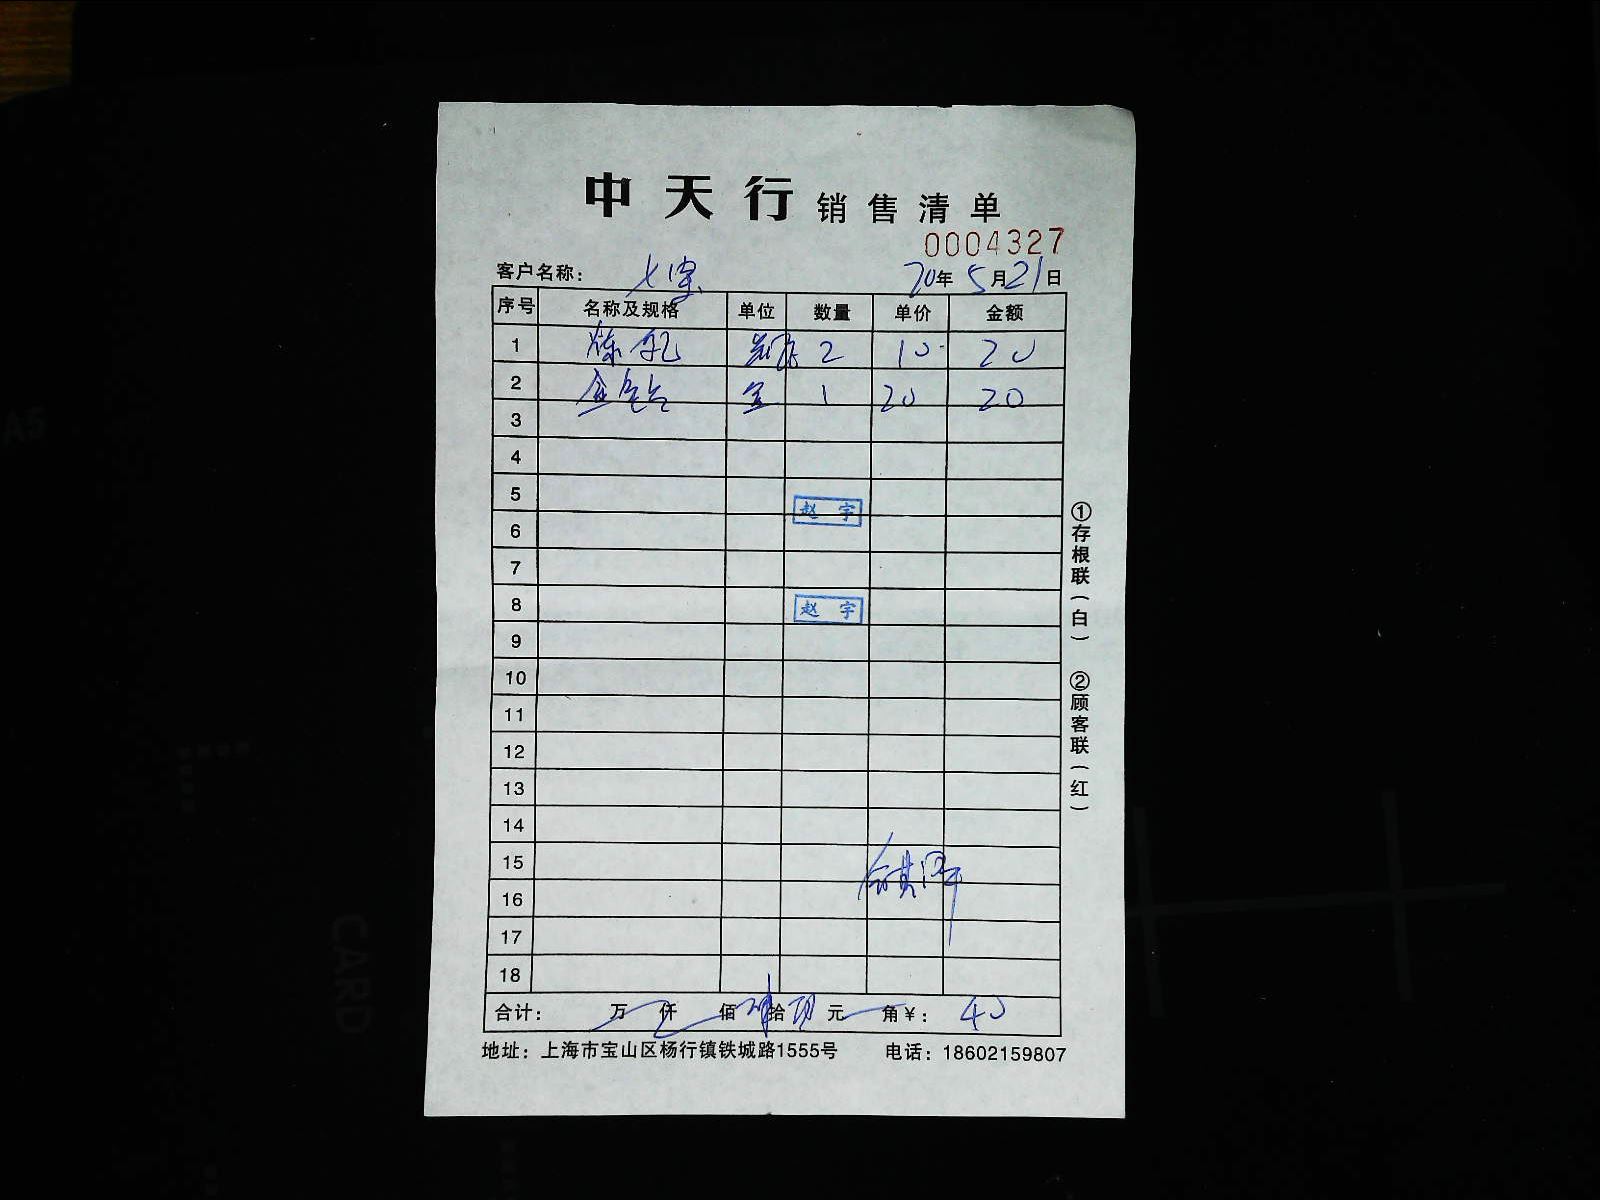 中天行 销售清单
0004327
客户名称： 20年 5月21日
序号 名称及规格 单位 数量 单价 金额
1 炼乳 2 10 20
2 1 20 20
3
4
5
赵 宇
6
7
8 赵 宇
9
10
11
12
13
14
15
16
17
18
合计： 万 仟 佰 肆拾 元 角￥： 40
地址：上海市宝山区杨行镇铁城路1555号 电话：18602159807
①存根联（白） ②顾客联（红）
A5
CARD